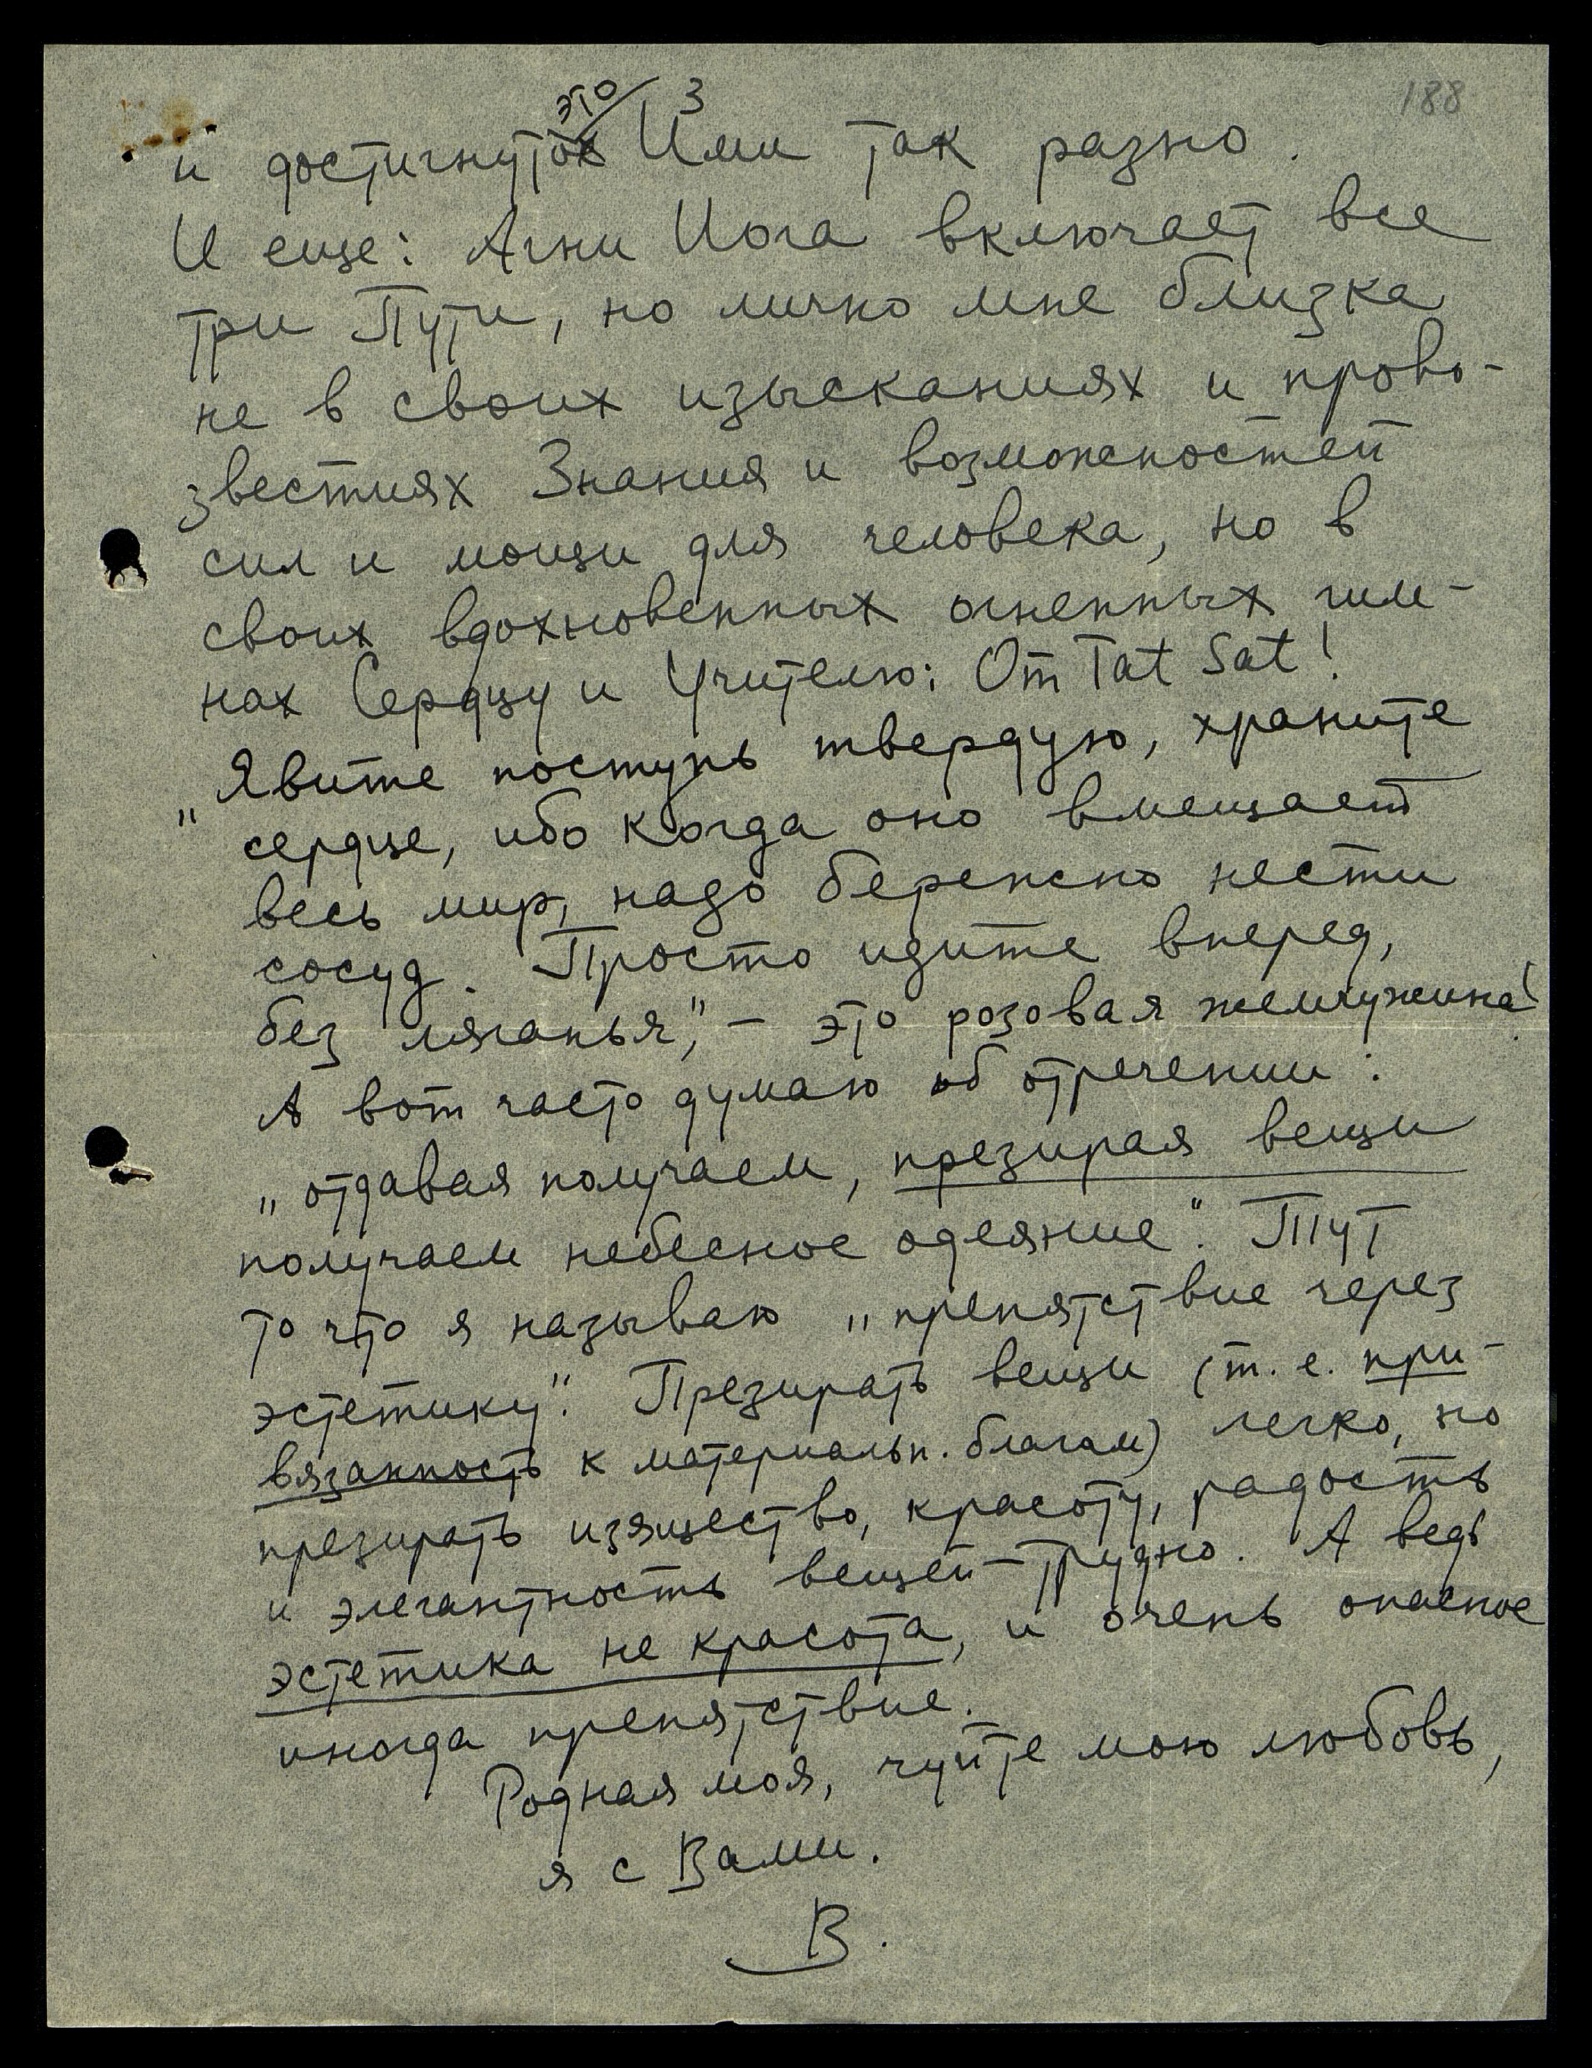 188
3
это
и достигнуто Ими так разно.
И еще: Агни Йога включает все
три Пути, но лично мне близка
не в своих изысканиях и прово-
звестиях Знания и возможностей
сил и мощи для человека, но в
своих вдохновенных огненных гим-
нах Сердцу и Учителю: Om Tat Sat!
„Явите поступь твердую, храните
сердце, ибо когда оно вмещает
весь мир, надо бережно нести
сосуд. Просто идите вперед,
без ляганья", – это розовая жемчужина!
А вот часто думаю об отречении:
„отдавая получаем, презирая вещи
получаем небесное одеяние". Тут
то что я называю „препятствие через
эстетику". Презирать вещи (т. е. при-
вязанность к материальн. благам) легко, но
презирать изящество, красоту, радость
и элегантность вещей – трудно. А ведь
эстетика не красота, и очень опасное
иногда препятствие.
Родная моя, чуйте мою любовь,
я с Вами.
В.